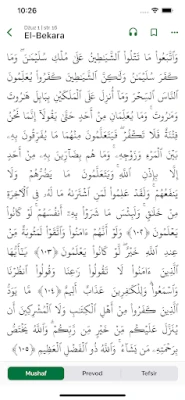 10:26
El-Bekara
وَٱتَّبَعُوا۟ مَا تَتْلُوا۟ ٱلشَّيَـٰطِينُ عَلَىٰ مُلْكِ سُلَيْمَـٰنَ ۖ وَمَا
كَفَرَ سُلَيْمَـٰنُ وَلَـٰكِنَّ ٱلشَّيَـٰطِينَ كَفَرُوا۟ يُعَلِّمُونَ
ٱلنَّاسَ ٱلسِّحْرَ وَمَآ أُنزِلَ عَلَى ٱلْمَلَكَيْنِ بِبَابِلَ هَـٰرُوتَ
وَمَـٰرُوتَ ۚ وَمَا يُعَلِّمَانِ مِنْ أَحَدٍ حَتَّىٰ يَقُولَآ إِنَّمَا نَحْنُ
فِتْنَةٌ فَلَا تَكْفُرْ ۖ فَيَتَعَلَّمُونَ مِنْهُمَا مَا يُفَرِّقُونَ بِهِۦ
بَيْنَ ٱلْمَرْءِ وَزَوْجِهِۦ ۚ وَمَا هُم بِضَآرِّينَ بِهِۦ مِنْ أَحَدٍ
إِلَّا بِإِذْنِ ٱللَّهِ ۚ وَيَتَعَلَّمُونَ مَا يَضُرُّهُمْ وَلَا
يَنفَعُهُمْ ۚ وَلَقَدْ عَلِمُوا۟ لَمَنِ ٱشْتَرَىٰهُ مَا لَهُۥ فِى ٱلْـَٔاخِرَةِ
مِنْ خَلَـٰقٍ ۚ وَلَبِئْسَ مَا شَرَوْا۟ بِهِۦٓ أَنفُسَهُمْ ۚ لَوْ كَانُوا۟
يَعْلَمُونَ ﴿١٠٢﴾ وَلَوْ أَنَّهُمْ ءَامَنُوا۟ وَٱتَّقَوْا۟ لَمَثُوبَةٌ مِّنْ
عِندِ ٱللَّهِ خَيْرٌ ۖ لَّوْ كَانُوا۟ يَعْلَمُونَ ﴿١٠٣﴾ يَـٰٓأَيُّهَا
ٱلَّذِينَ ءَامَنُوا۟ لَا تَقُولُوا۟ رَٰعِنَا وَقُولُوا۟ ٱنظُرْنَا
وَٱسْمَعُوا۟ ۗ وَلِلْكَـٰفِرِينَ عَذَابٌ أَلِيمٌ ﴿١٠٤﴾ مَّا يَوَدُّ
ٱلَّذِينَ كَفَرُوا۟ مِنْ أَهْلِ ٱلْكِتَـٰبِ وَلَا ٱلْمُشْرِكِينَ أَن
يُنَزَّلَ عَلَيْكُم مِّنْ خَيْرٍ مِّن رَّبِّكُمْ ۗ وَٱللَّهُ يَخْتَصُّ
بِرَحْمَتِهِۦ مَن يَشَآءُ ۚ وَٱللَّهُ ذُو ٱلْفَضْلِ ٱلْعَظِيمِ ﴿١٠٥﴾
Mushaf Prevod Tefsir